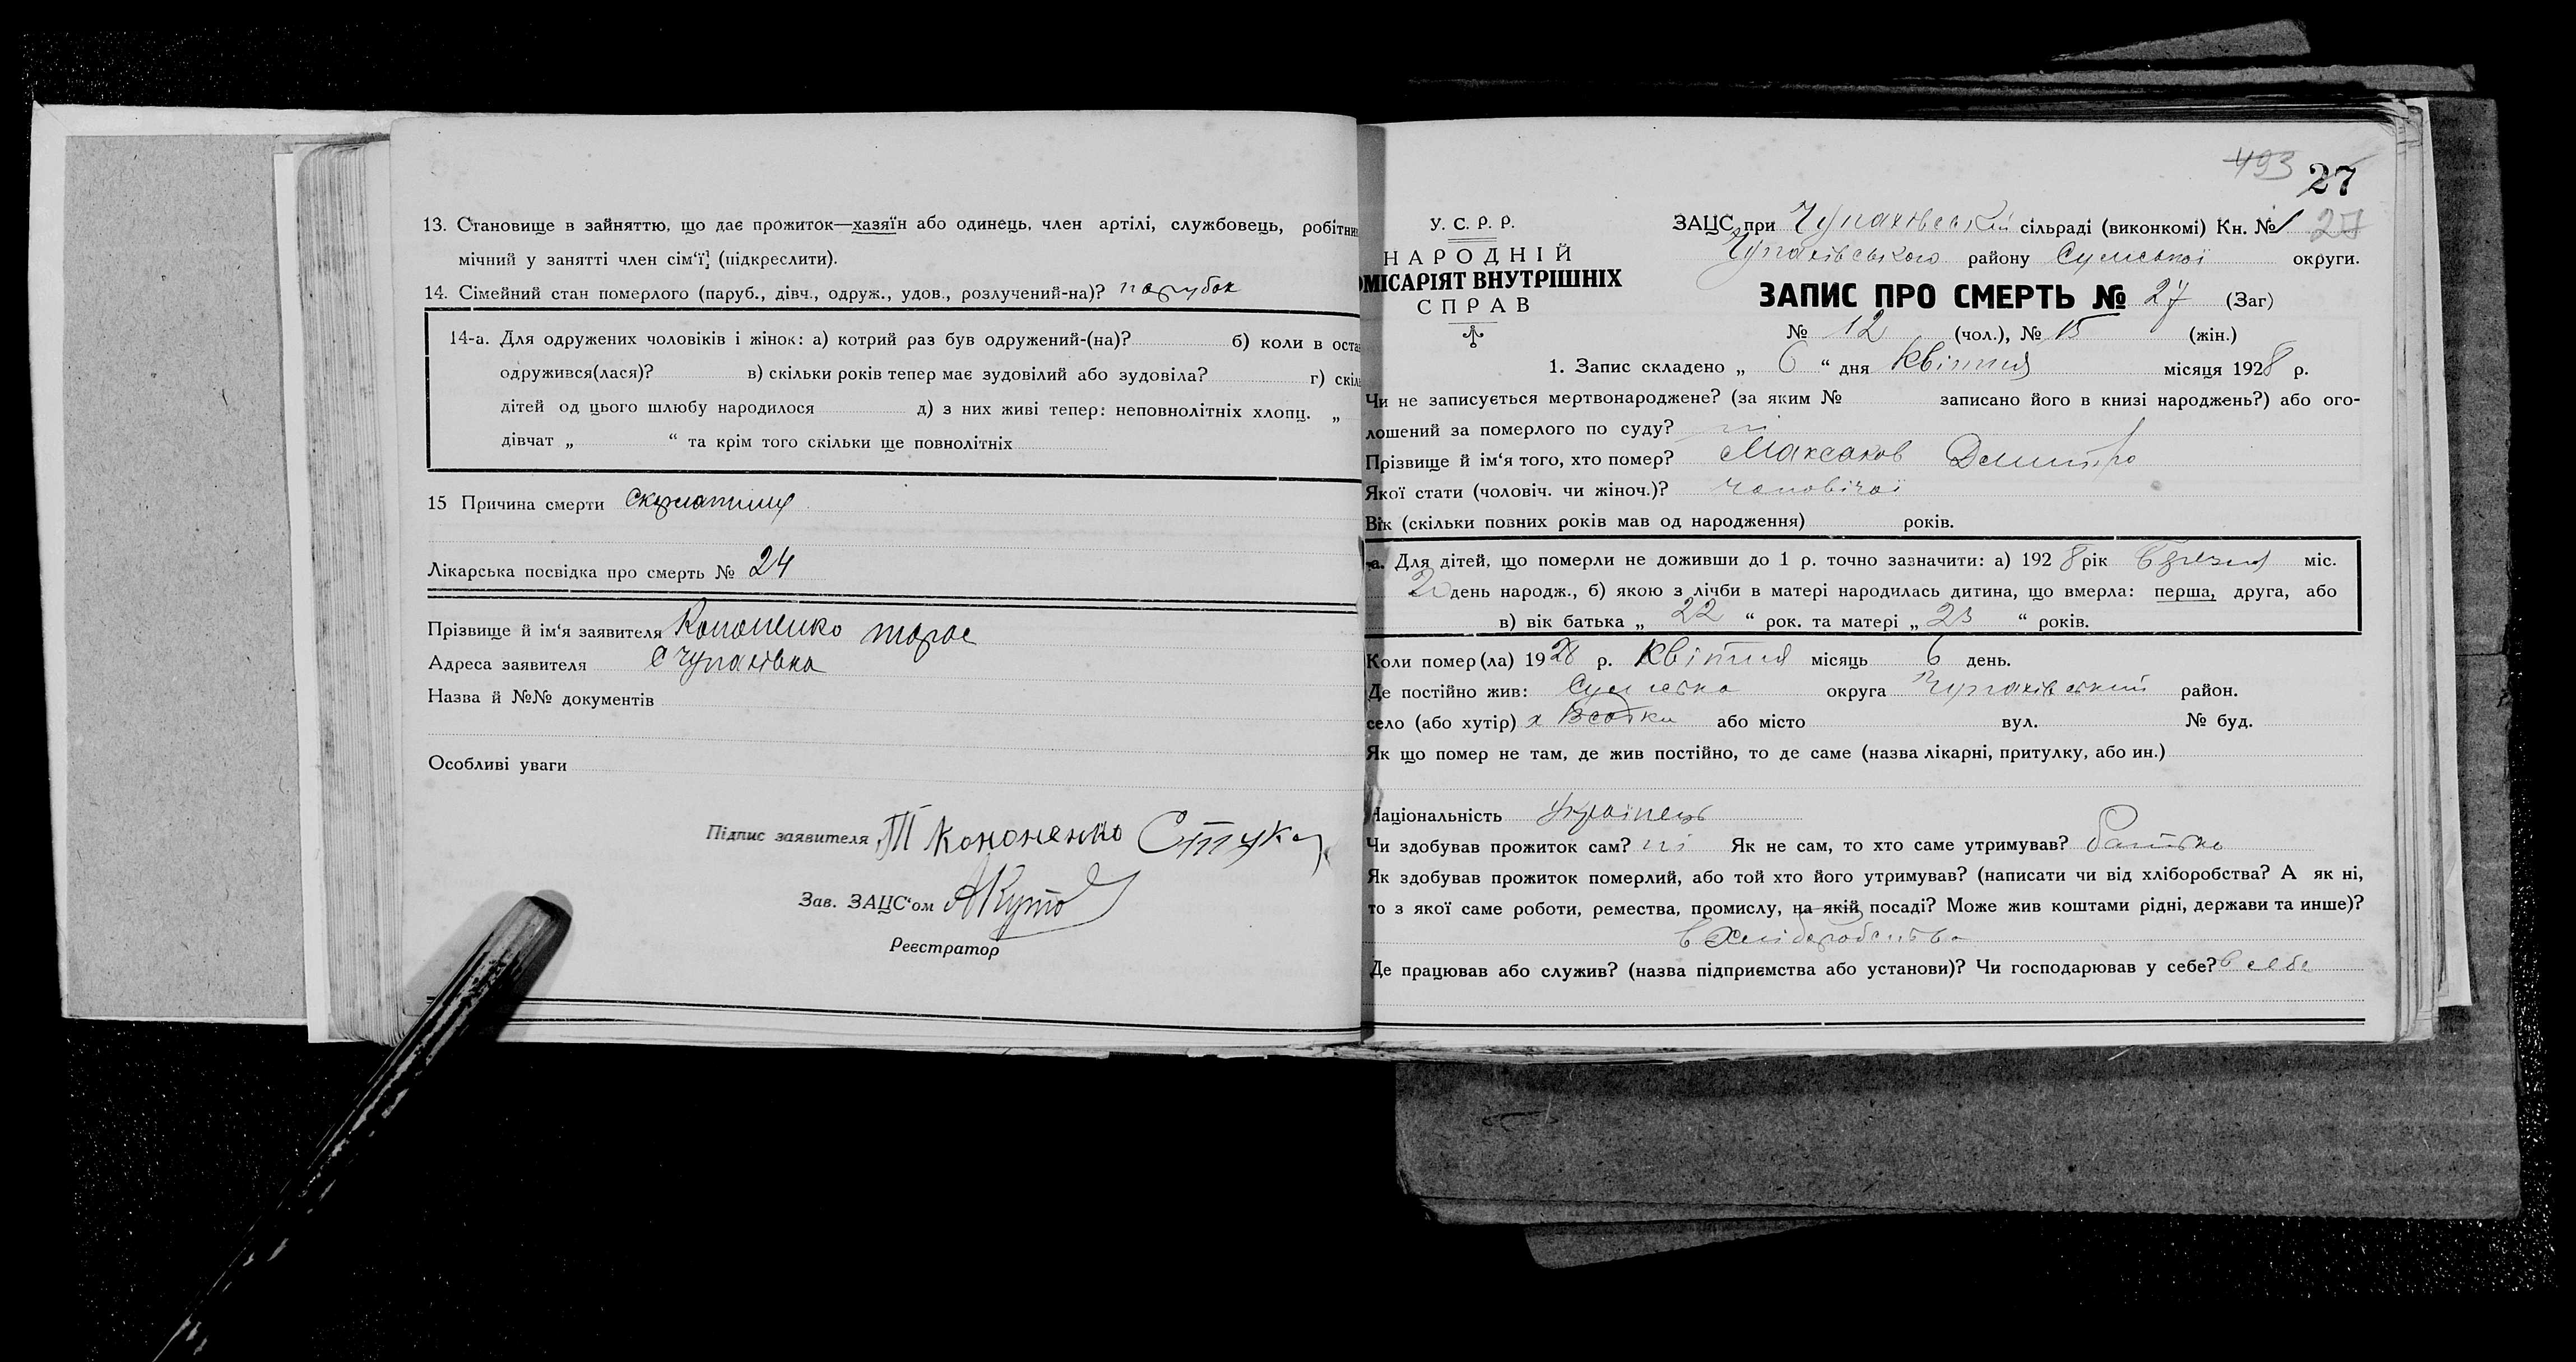 13. Становище в зайняттю, що дає прожиток—хазяїн або одинець, член артілі, службовець, робітни
мічний у занятті член сім'ї; (підкреслити).
14. Сімейний стан померлого (паруб., дівч., одруж., удов., розлучений-на)? парубок
14-а. Для одружених чоловіків і жінок: а) котрий раз був одружений-(на)? б) коли в оста
одружився(лася)? в) скільки років тепер має зудовілий або зудовіла? г) скіль
дітей од цього шлюбу народилося д) з них живі тепер: неповнолітніх хлопц. „
дівчат „ “ та крім того скільки ще повнолітніх
15 Причина смерти скарлатина
Лікарська посвідка про смерть № 24
Прізвище й ім'я заявителя Кононенко Тарас
Адреса заявителя с Чупахівка
Назва й №№ документів
Особливі уваги
Підпис заявителя Т Кононенко
Зав. ЗАЦС'ом
Реєстратор
493 27
У. С. Р. Р.
НАРОДНІЙ
ОМІСАРІЯТ ВНУТРІШНІХ
СПРАВ
ЗАЦС при Чупахівській сільраді (виконкомі) Кн. № 1 27
Чупахівського району Сумської округи.
ЗАПИС ПРО СМЕРТЬ № 27 (Заг)
№ 12 (чол.), № 15 (жін.)
1. Запис складено „ 6 “ дня Квітня місяця 1928 р.
Чи не записується мертвонароджене? (за яким № записано його в книзі народжень?) або ого-
лошений за померлого по суду? ні
Прізвище й ім'я того, хто помер? Максаков Дмитро
Якої стати (чоловіч. чи жіноч.)? чоловічої
Вік (скільки повних років мав од народження) років.
а. Для дітей, що померли не доживши до 1 р. точно зазначити: а) 1928 рік березня міс.
день народж., б) якою з лічби в матері народилась дитина, що вмерла: перша, друга, або
в) вік батька „ 22 “ рок. та матері „ 23 “ років.
Коли помер(ла) 1928 р. Квітня місяць 6 день.
Де постійно жив: Сумська округа Чупахівський район.
село (або хутір) х або місто вул. № буд.
Як що помер не там, де жив постійно, то де саме (назва лікарні, притулку, або ин.)
Національність Українець
Чи здобував прожиток сам? ні Як не сам, то хто саме утримував? батько
Як здобував прожиток померлий, або той хто його утримував? (написати чи від хліборобства? А як ні,
то з якої саме роботи, ремества, промислу, на якій посаді? Може жив коштами рідні, держави та инше)?
в Хліборобства
Де працював або служив? (назва підприємства або установи)? Чи господарював у себе? в себе